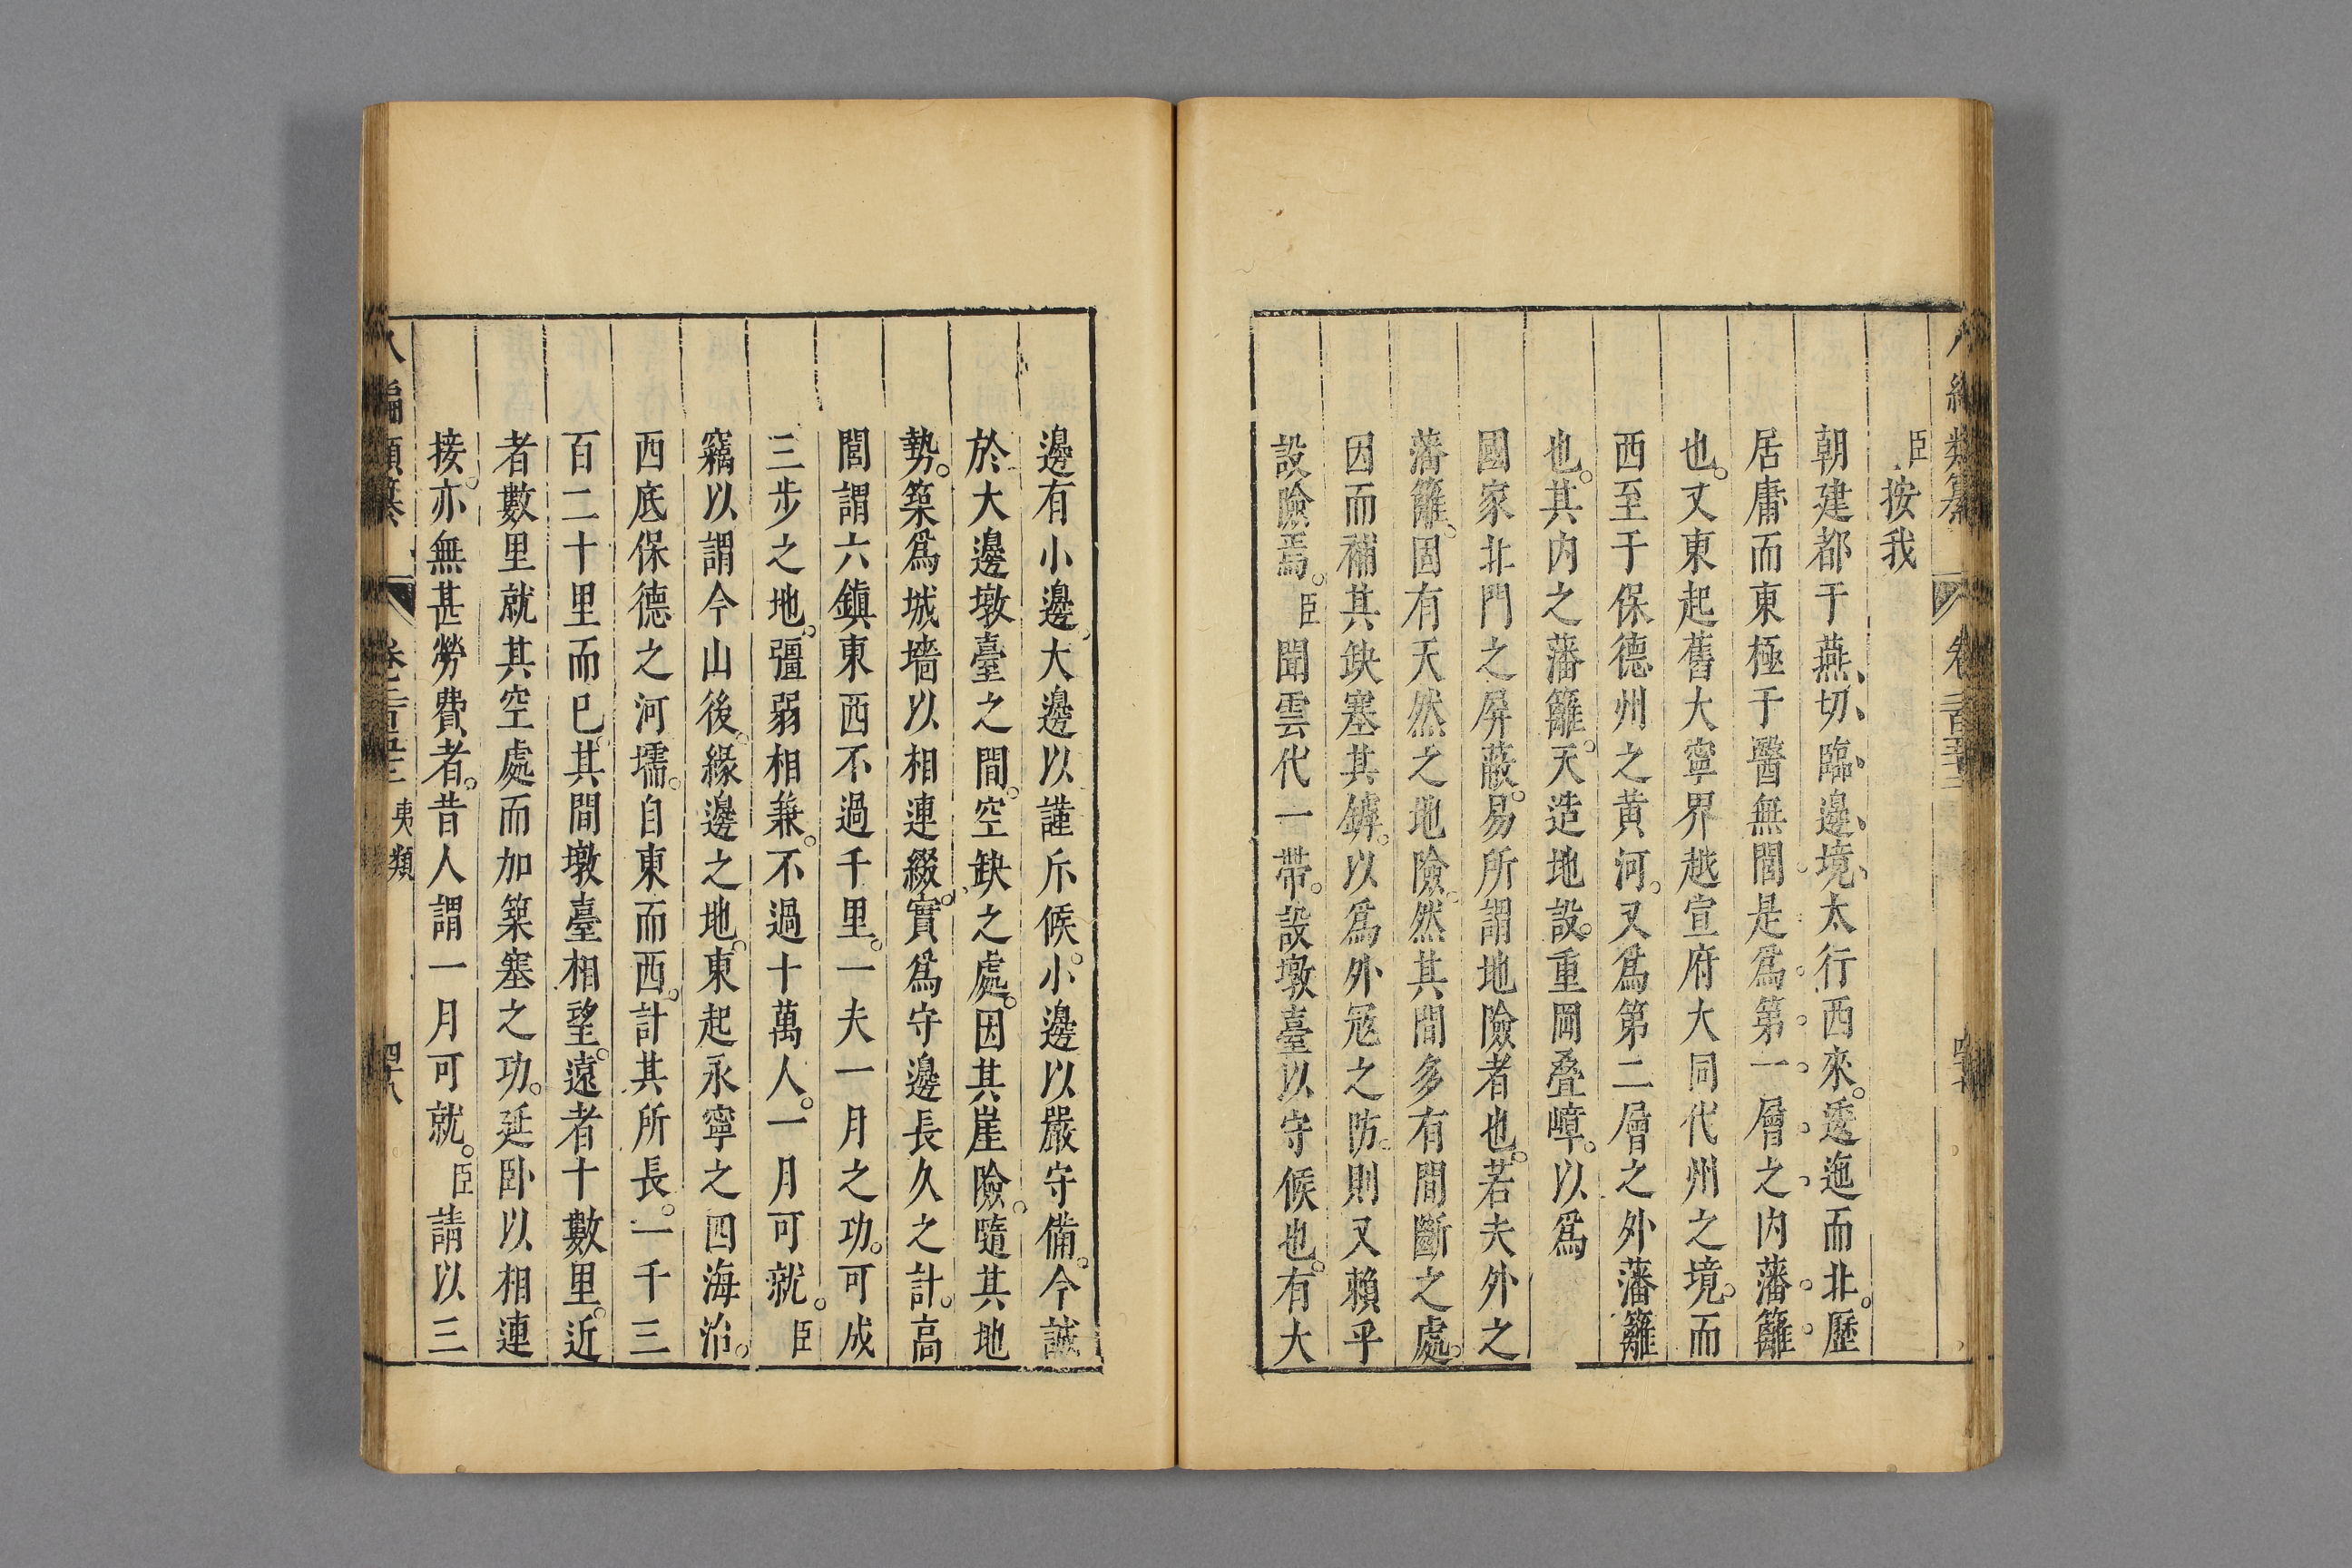 臣按我
朝建都于燕切臨邊境太行西來逶迤而北歷
居庸而東極于醫無閭是爲第一層之内藩籬
也又東起舊大寧界越宣府大同代州之境而
西至于保德州之黄河又爲第二層之外藩籬
也其内之藩籬天造地設重岡疊嶂以爲
國家北門之屏蔽易所謂地險者也若夫外之
藩籬固有天然之地險然其間多有間斷之處
因而補其缺塞其罅以爲外冦之防則又賴乎
設險焉臣聞雲代一帶設墩臺以守候也有大
邊有小邊大邊以謹斥候小邊以嚴守備今誠
於大邊墩臺之間空缺之處因其崖險隨其地
勢築爲城墻以相連綴實爲守邊長久之計高
閭謂六鎮東西不過千里一夫一月之功可成
三步之地彊弱相兼不過十萬人一月可就臣
竊以謂今山後緣邊之地東起永寧之四海冶
西底保德之河壖自東而西計其所長一千三
百二十里而已其間墩臺相望遠者十數里近
者數里就其空處而加築塞之功延卧以相連
接亦無甚勞費者昔人謂一月可就臣請以三
八編類纂 夷類 四十八